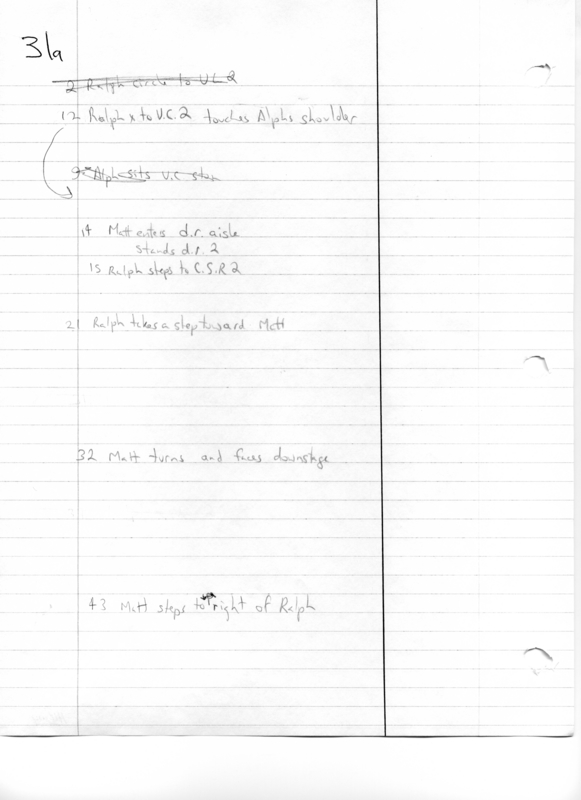 31a
2 Ralph circle to U L 2
12 Ralph x to U.C. 2 touches Alphs shoulder
9 Alph sits U.C
14 Matt enters d.r. aisle
stands d.r. 2
15 Ralph steps to C.S.R 2
21 Ralph takes a step toward Matt
32 Matt turns and faces downstge
43 Matt steps to right of Ralph